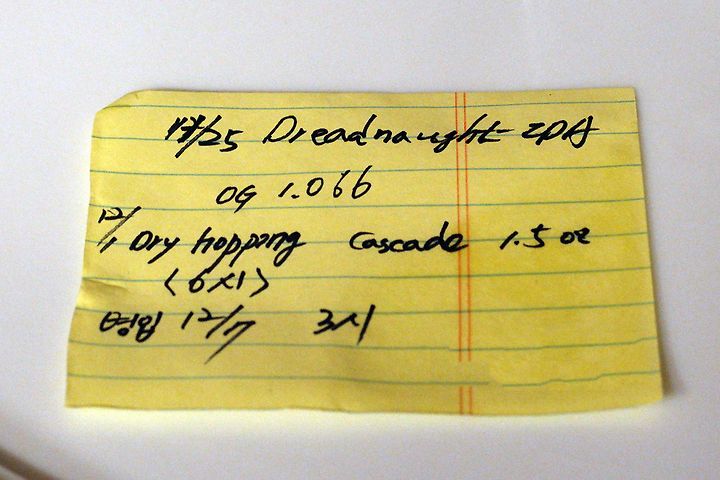 11/25 Dreadnaught IPA
OG 1.066
12/1 Dry hopping Cascade 1.5 oz
(6일)
병입 12/7 3시